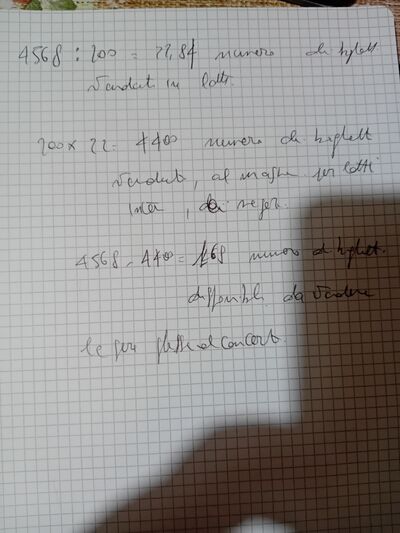 4568 : 200 = 22,84 numero di bigliett
vendut in lotti.
200 x 22 = 4400 numero di bigliett
venduti, al massimo per lotti
interi, dai negozi.
4568 - 4400 = 168 numero di bigliett.
disponibili da vendere
la sera stessa del concerto.